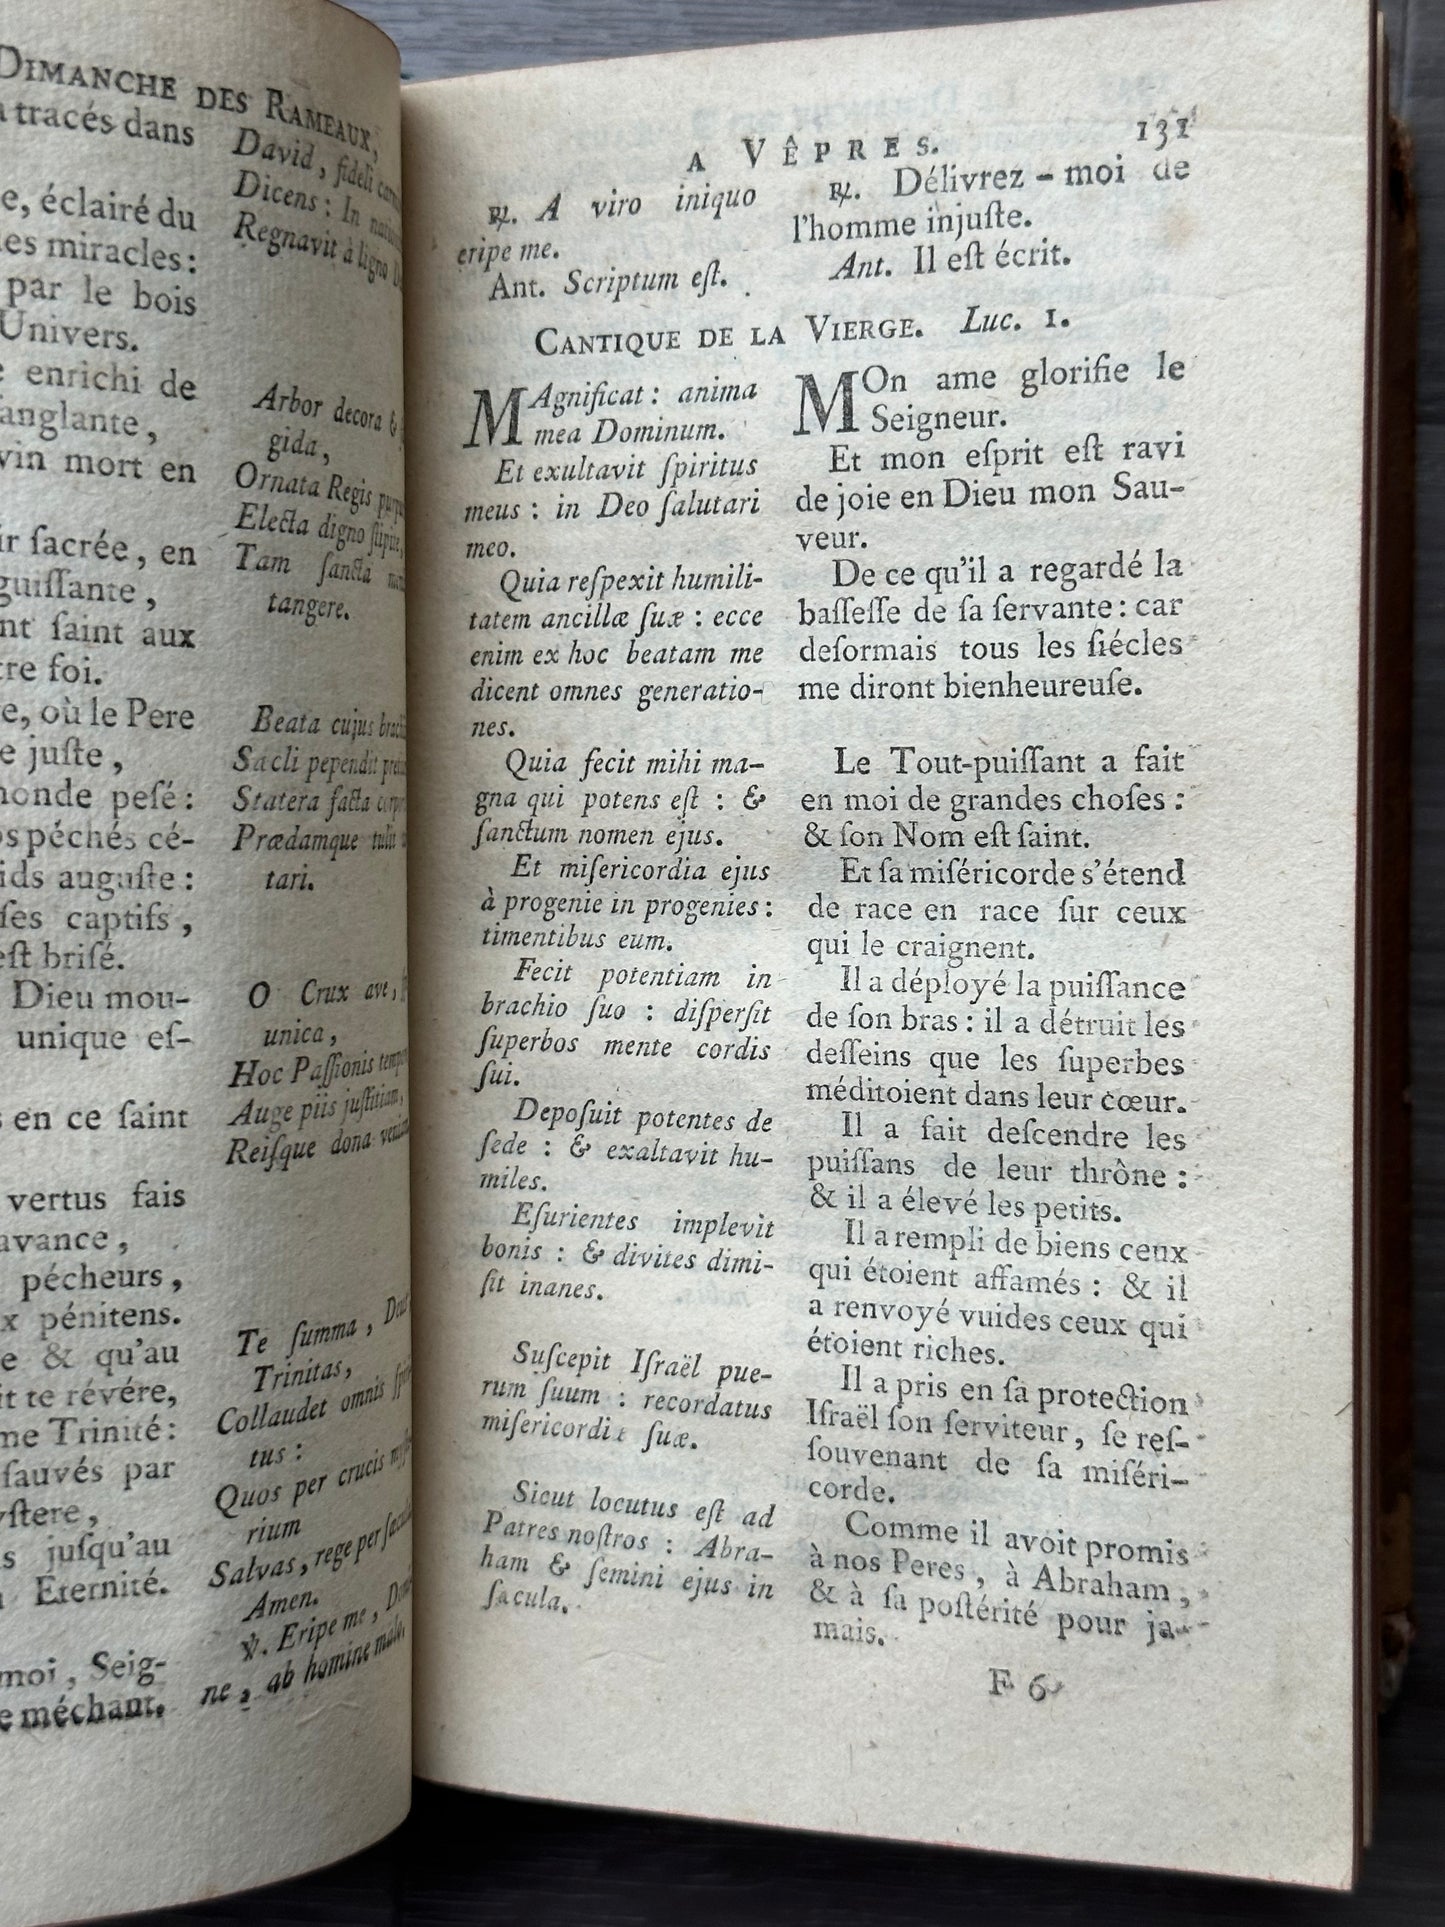 DIMANCHE DES RAMEAUX,
tracés dans
e, éclairé du
es miracles:
par le bois
Univers.
enrichi de
ſanglante,
vin mort en
ir ſacrée, en
guiſſante,
nt ſaint aux
tre foi.
e, où le Pere
e juſte,
monde peſé:
os péchés cé-
ids auguſte:
ſes captifs,
eſt briſé.
Dieu mou-
unique eſ-
s en ce ſaint
vertus fais
avance,
pécheurs,
x pénitens.
e & qu'au
it te révére,
me Trinité:
ſauvés par
yſtere,
s juſqu'au
Eternité.
moi, Seig-
e méchant.
David, fideli
Dicens: In
Regnavit à ligno
Arbor decora &
gida,
Ornata Regis
Electa digno ſtipite,
Tam ſancta
tangere.
Beata cujus
Sacli pependit
Statera facta
Prædamque tulit
tari.
O Crux ave,
unica,
Hoc Paſſionis
Auge piis juſtitiam,
Reiſque dona
Te ſumma, Deus
Trinitas,
Collaudet omnis
tus:
Quos per crucis
rium
Salvas, rege per
Amen.
℣. Eripe me,
ne, ab homine malo.
A VÊPRES. 131
℟. A viro iniquo
eripe me.
Ant. Scriptum eſt.
℟. Délivrez-moi de
l'homme injuſte.
Ant. Il eſt écrit.
CANTIQUE DE LA VIERGE. Luc. 1.
MAgnificat: anima
mea Dominum.
Et exultavit ſpiritus
meus: in Deo ſalutari
meo.
Quia reſpexit humili-
tatem ancillæ ſuæ: ecce
enim ex hoc beatam me
dicent omnes generatio-
nes.
Quia fecit mihi ma-
gna qui potens eſt: &
ſanctum nomen ejus.
Et miſericordia ejus
à progenie in progenies:
timentibus eum.
Fecit potentiam in
brachio ſuo: diſperſit
ſuperbos mente cordis
ſui.
Depoſuit potentes de
ſede: & exaltavit hu-
miles.
Eſurientes implevit
bonis: & divites dimi-
ſit inanes.
Suſcepit Iſraël pue-
rum ſuum: recordatus
miſericordiæ ſuæ.
Sicut locutus eſt ad
Patres noſtros: Abra-
ham & ſemini ejus in
ſacula.
MOn ame glorifie le
Seigneur.
Et mon eſprit eſt ravi
de joie en Dieu mon Sau-
veur.
De ce qu'il a regardé la
baſſeſſe de ſa ſervante: car
deſormais tous les ſiécles
me diront bienheureuſe.
Le Tout-puiſſant a fait
en moi de grandes choſes:
& ſon Nom eſt ſaint.
Et ſa miſéricorde s'étend
de race en race ſur ceux
qui le craignent.
Il a déployé la puiſſance
de ſon bras: il a détruit les
deſſeins que les ſuperbes
méditoient dans leur cœur.
Il a fait deſcendre les
puiſſans de leur thrône:
& il a élevé les petits.
Il a rempli de biens ceux
qui étoient affamés: & il
a renvoyé vuides ceux qui
étoient riches.
Il a pris en ſa protection
Iſraël ſon ſerviteur, ſe reſ-
ſouvenant de ſa miſéri-
corde.
Comme il avoit promis
à nos Peres, à Abraham,
& à ſa poſtérité pour ja-
mais.
F 6